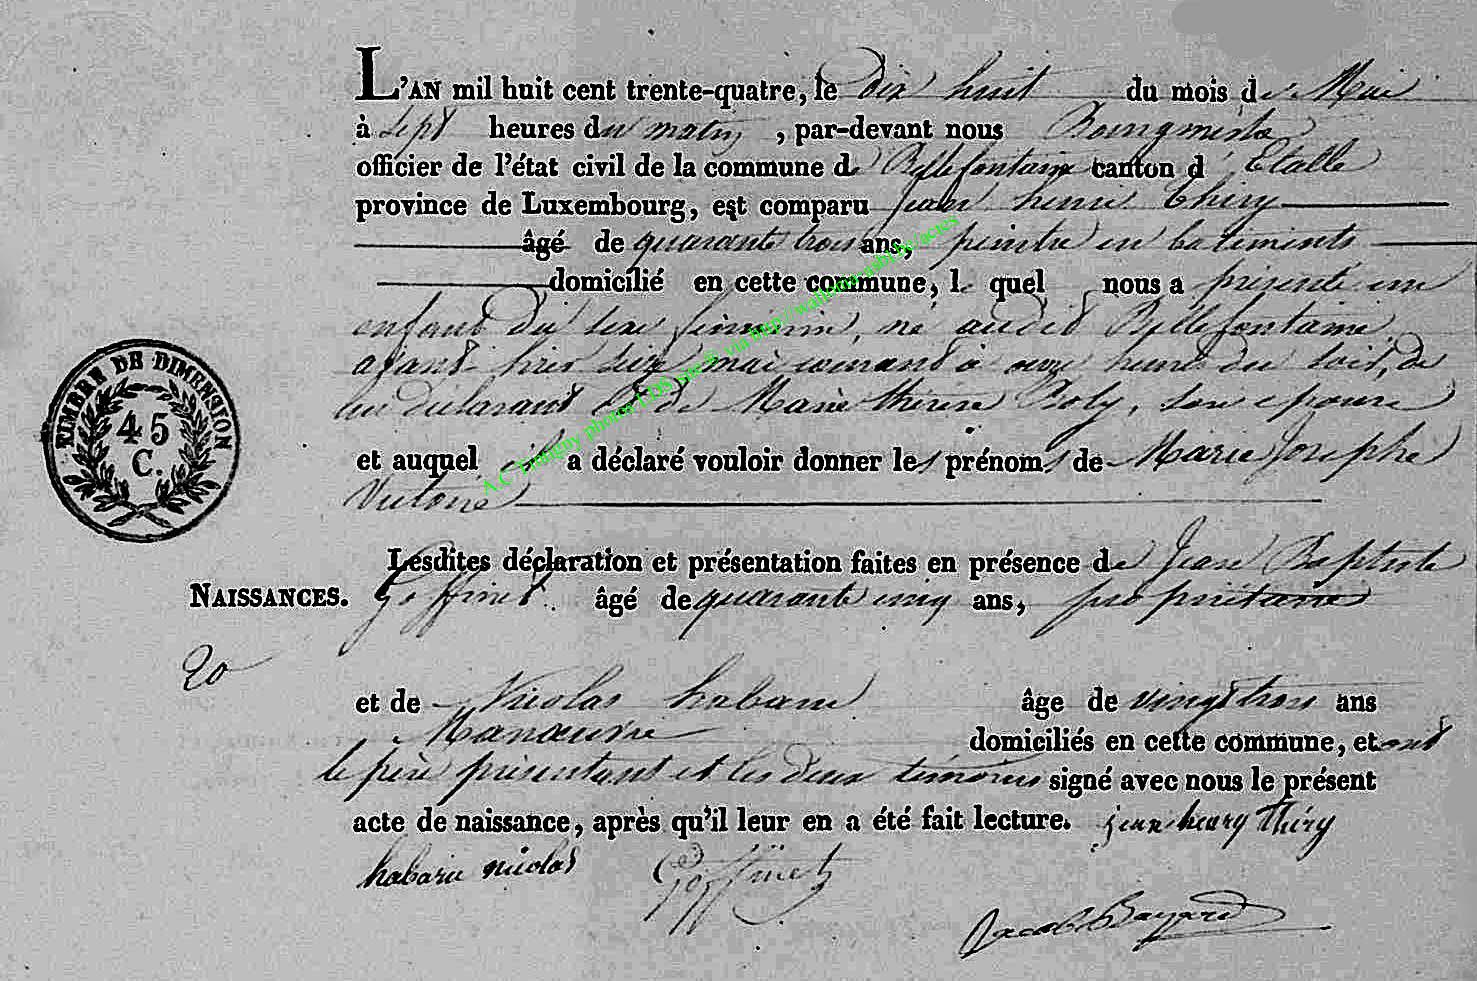 L'AN mil huit cent trente-quatre, le dix huit du mois de Mai
à sept heures du matin, par-devant nous Bourgmestre
officier de l'état civil de la commune de Bellefontaine canton d'Etalle
province de Luxembourg, est comparu Jean henri Thiry
âgé de quarante trois ans, peintre en batiments
domicilié en cette commune, lequel nous a présenté un
enfant du sexe féminin, né audit Bellefontaine
avant-hier seize mai courant à onze heures du soir, de
lui déclarant et de Marie therese Roly, son epouse
et auquel il a déclaré vouloir donner les prénoms de Marie Josephe
Victoire
Lesdites déclaration et présentation faites en présence de Jean Baptiste
NAISSANCES. Goffinet âgé de quarante cinq ans, propriétaire
20
et de Nicolas habaru âge de vingt trois ans
Manœuvre domiciliés en cette commune, et ont
le père présentant et les deux témoins signé avec nous le présent
acte de naissance, après qu'il leur en a été fait lecture. jean henry thiry
habaru nicolas Goffinet
Jacob Bayard
TIMBRE DE DIMENSION
45
C.
A.C Tintigny photos LDS site & via http://wallonia-asbl.be/actes